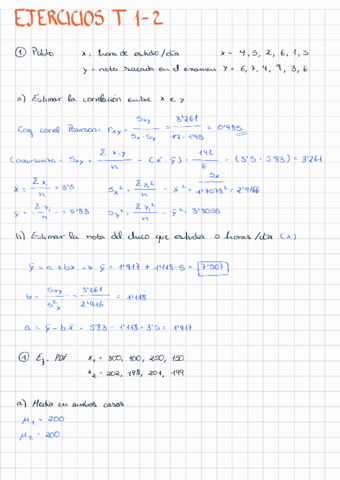 EJERCICIOS T 1-2
① Pablo x: hora de estudio/día x = 4, 5, 2, 6, 1, 3
y = nota sacada en el examen y = 6, 7, 4, 9, 3, 6
a) Estimar la correlación entre x e y
Coef. correl Pearson: rxy = Sxy / Sx · Sy = 3'261 / = 0'985
Covarianza = Sxy = Σ x·y / n - (x̄ · ȳ) = 142 / 6 - (3'5 · 5'83) = 3'261
x̄ = Σ xi / n = 3'5 Sx² = Σ xi² / n - x̄² = 1'7078² = 2'9166
ȳ = Σ yi / n = 5'83 Sy² = Σ yi² / n - ȳ² = 3'8056
b) Estimar la nota del chico que estudia 5 horas/día (x)
ŷ = a + bx → ŷ = 1'917 + 1'118 · 5 = 7'507
b = Sxy / S²x = 3'261 / 2'916 = 1'118
a = ȳ - b x̄ = 5'83 - 1'118 · 3'5 = 1'917
① Ej. PDF x₁ = 300, 100, 250, 150
x₂ = 202, 198, 201, 199
a) Media en ambos casos
μ₁ = 200
μ₂ = 200